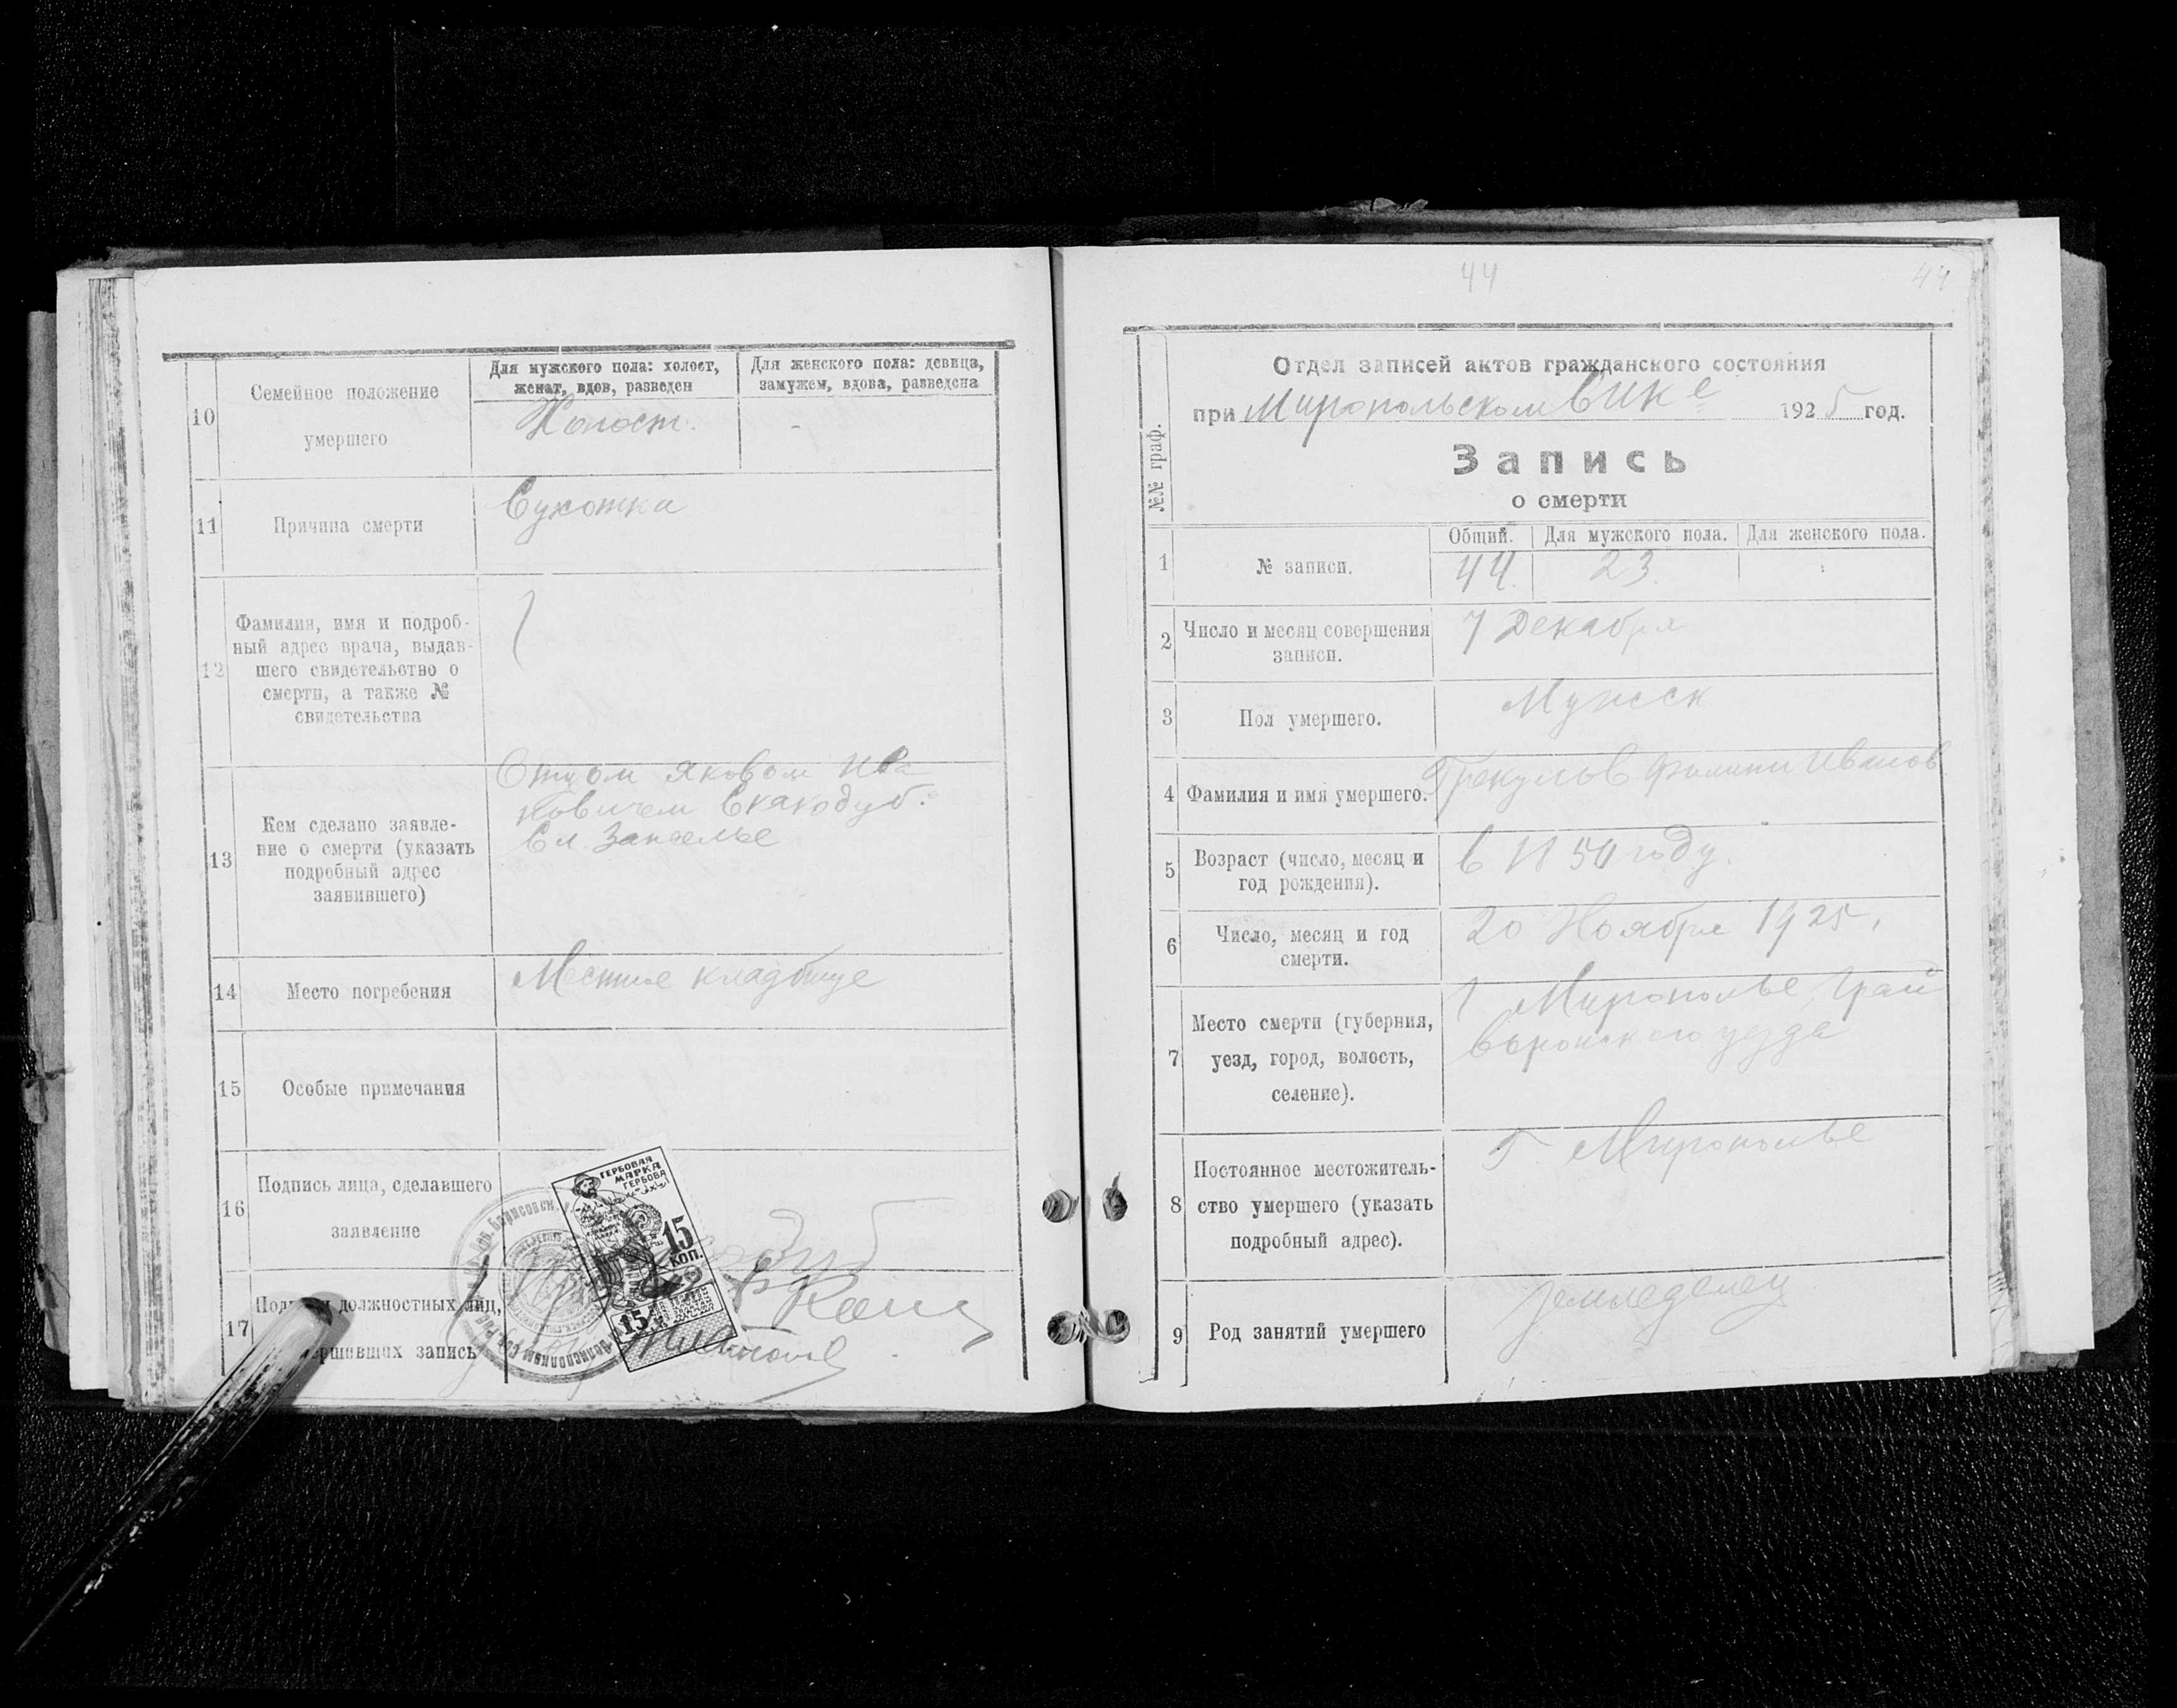 10
Семейное положение
умершего
Для мужского пола: холост,
женат, вдов, разведен
Для женского пола: девица,
замужем, вдова, разведена
Холост.
-
11
Причина смерти
Сухотка
12
Фамилия, имя и подроб-
ный адрес врача, выдав-
шего свидетельство о
смерти, а также №
свидетельства
13
Кем сделано заявле-
ние о смерти (указать
подробный адрес
заявившего)
Отцом Яковом Ива
новичем Скакодуб.
Сл. Запселье
14
Место погребения
Местное кладбище
15
Особые примечания
16
Подпись лица, сделавшего
заявление
17
должностных лиц,
запись
ГЕРБОВАЯ
МАРКА
ГЕРБОВА
15
КОП.
15
44
44
№№ граф.
Отдел записей актов гражданского состояния
при Миропольском Вике 1925 год.
Запись
о смерти
1
№ записи.
Общий.
Для мужского пола.
Для женского пола.
44.
23.
2
Число и месяц совершения
записи.
7 Декабря
3
Пол умершего.
Мужск
4
Фамилия и имя умершего.
Филипп Иванов
5
Возраст (число, месяц и
год рождения).
году.
6
Число, месяц и год
смерти.
20 Ноября 1925.
7
Место смерти (губерния,
уезд, город, волость,
селение).
Г Мирополье, Грай
воронского уезда
8
Постоянное местожитель-
ство умершего (указать
подробный адрес).
Г. Мирополье
9
Род занятий умершего
земледелец